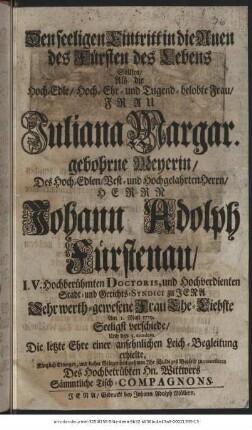 Den seeligen Eintritt in die Auen
des Fürsten des Lebens
Sollten/
Als die
Hoch-Edle/ Hoch-Ehr- und Tugend-belobte Frau/
FRAU
Juliana Margar.
gebohrne Meyerin/
Des Hoch-Edlen/Vest- und Hochgelahrten Herrn/
HERRN
Johann Adolph
Fürstenau/
I. V. Hochberühmten DOCTORIS, und Hochverdienten
Stadt- und Gerichts-SYNDICI zu JENA
Sehr werth-gewesene Frau Ehe-Liebste
Am 1. Maji
Seeligst verschiede/
Und den
Die letzte Ehre einer ansehnlichen Leich-Begleitung
erhielte,
Des Hochbetrübten Hn. Wittwers
Sämmtliche Tisch-COMPAGNONS.
JENA/ Gedruckt bey Johann Adolph Müllern.